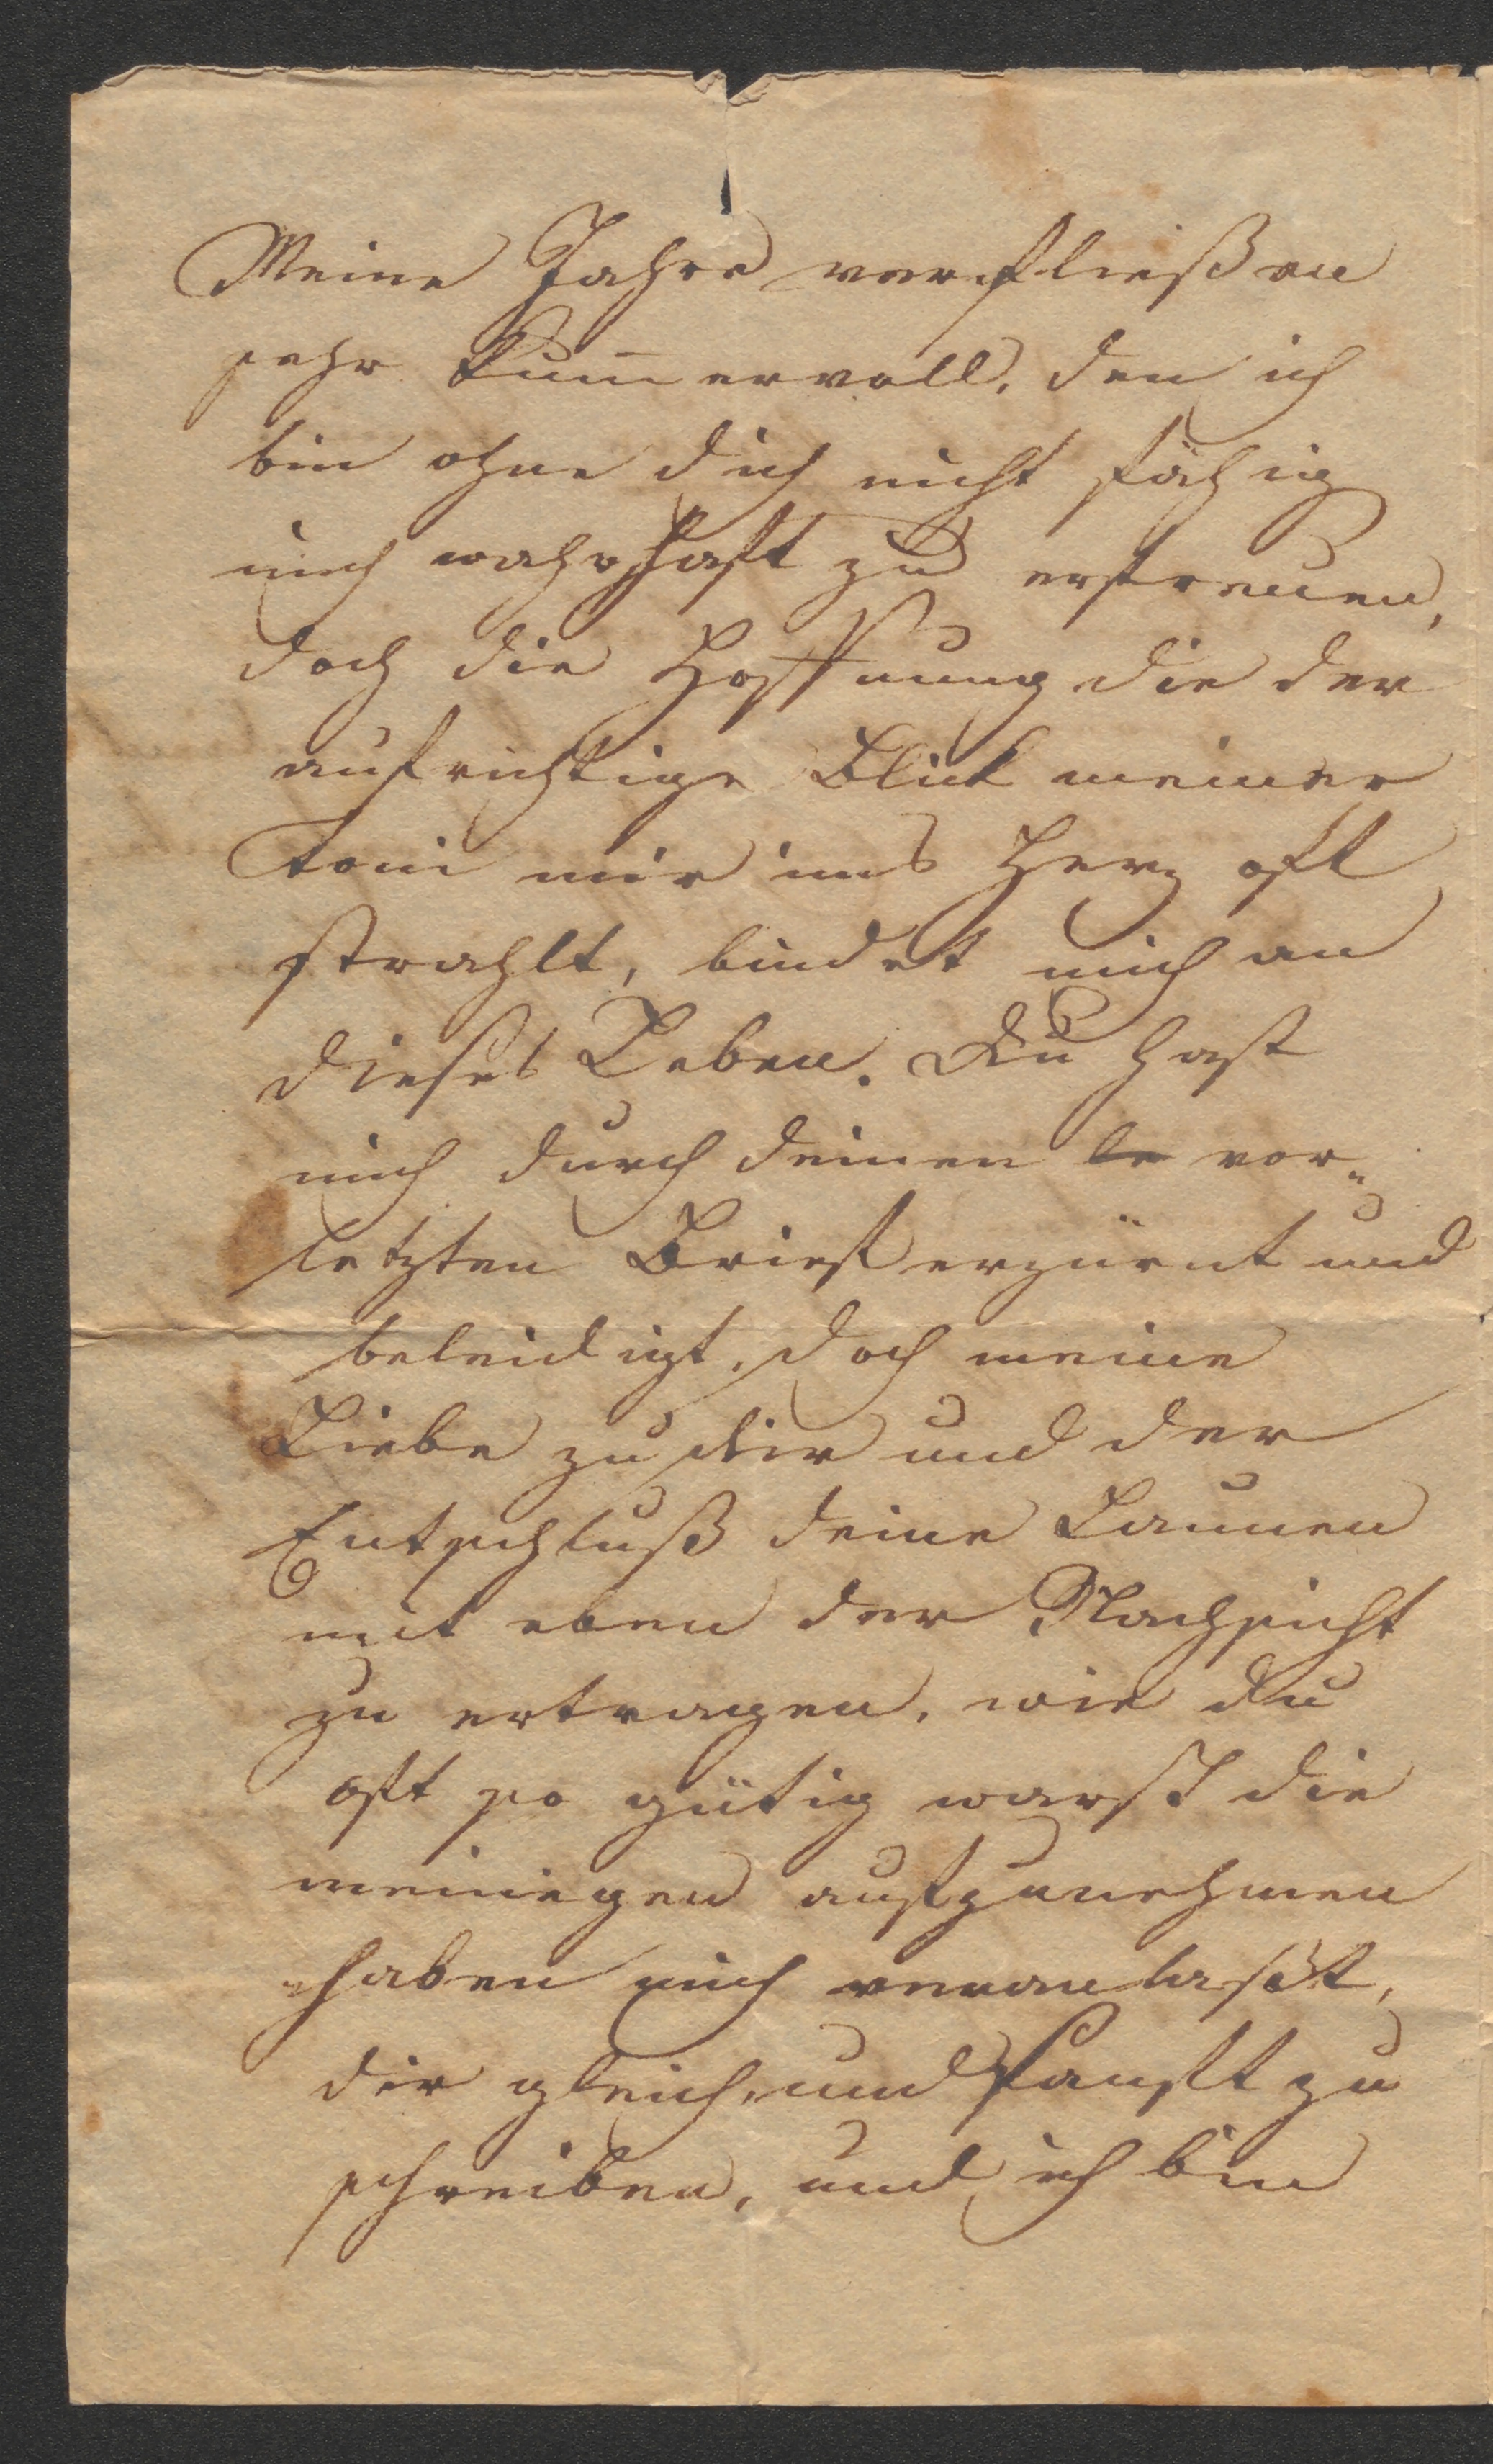 Meine Jahre verfließen
sehr kum̅ervoll, den ich
bin ohne dich nicht fähig
mich wahrhaft zu erfreuen,
doch die Hoffnung die der
aufrichtige Blick meiner
Toni mir ins Herz oft
strahlt, bindet mich an
dieses Leben. Du hast
mich durch deinen le vor„
letzten Brief erzürnt und
beleidigt, doch meine
Liebe zu dir und der
Entschluß deine Launen
mit eben der Nachsicht
zu ertragen, wie du
oft so gütig warst die
meinigen aufzunehmen
haben mich veranlasst,
dir gleich, und sanft zu
schreiben, und ich bin